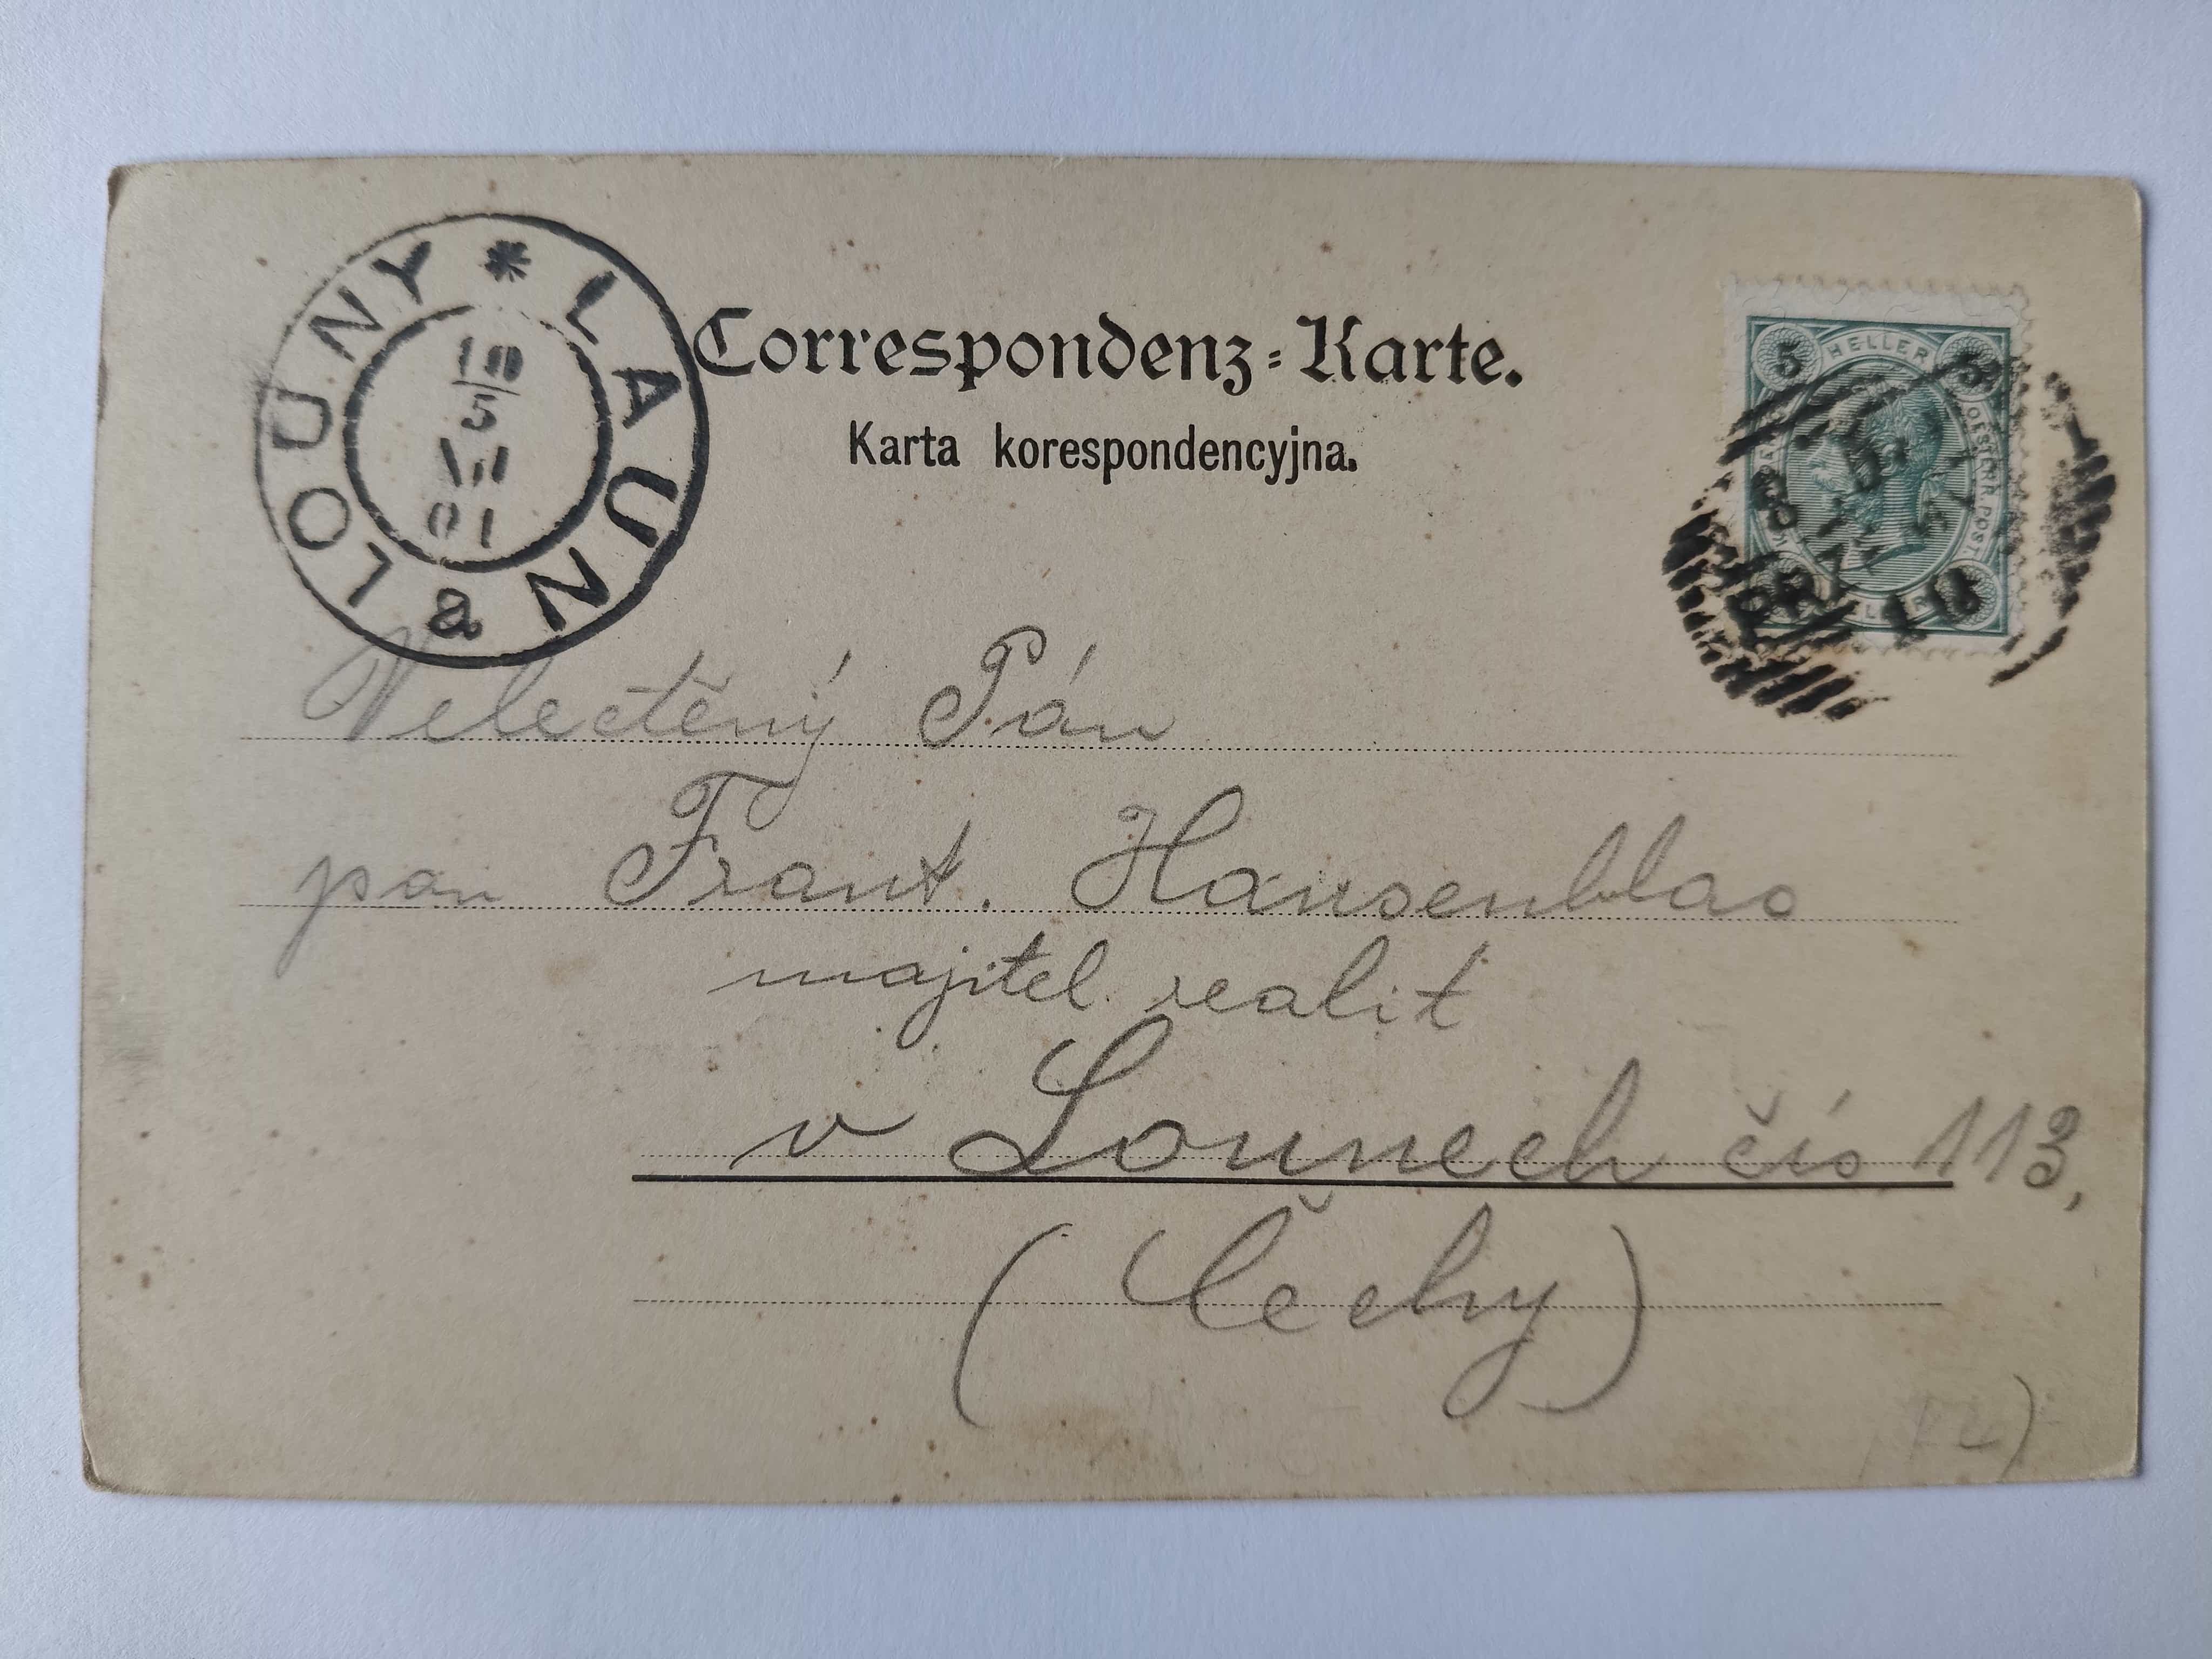 LAUN a LOUNY
10/5
VII
01
Correspondenz-Karte.
Karta korespondencyjna.
5 HELLER 5
OESTERR. POST
Velectěný Pán
pan Frant. Hansenblas
majitel realit
v Lounech čís 113,
(Čechy)